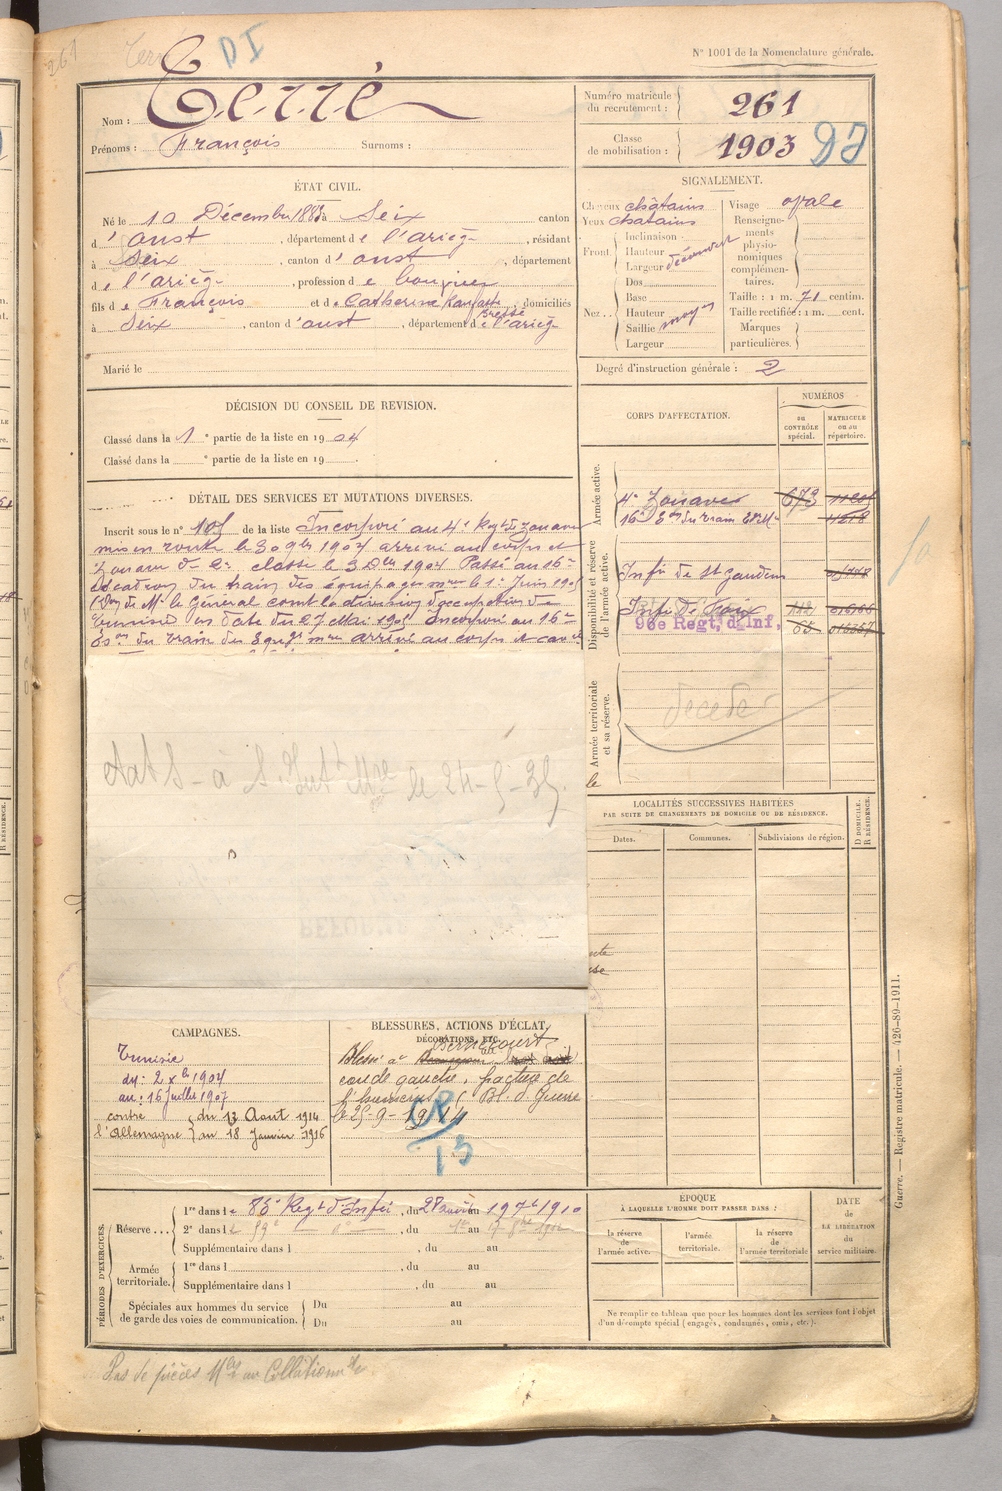 261
DI
N° 1001 de la Nomenclature générale.
Nom : Terré
Prénoms : François Surnoms :
Numéro matricule du recrutement : 261
Classe de mobilisation : 1903
ÉTAT CIVIL.
Né le 10 Décembre 1883 à Seix canton
d'oust, département de l'ariège, résidant
à Seix, canton d'oust, département
de l'ariège, profession de bouvier
fils de François et de Catherine domiciliés
à Seix, canton d'oust, département de l'ariège
Marié le
SIGNALEMENT.
Cheveux châtains
Yeux chatains
Front. Inclinaison
Hauteur
Largeur
découvert
Nez.. Dos
Base
Hauteur
Saillie
Largeur
moyen
Visage ovale
Renseignements physionomiques complémentaires.
Taille : 1 m. 71 centim.
Taille rectifiée : 1 m. cent.
Marques particulières.
Degré d'instruction générale : 2
DÉCISION DU CONSEIL DE REVISION.
Classé dans la 1e partie de la liste en 1904
Classé dans la e partie de la liste en 19
DÉTAIL DES SERVICES ET MUTATIONS DIVERSES.
Inscrit sous le n° 105 de la liste Incorporé au 4e Regt de Zouaves
mis en route le 30 9bre 1904 arrivé au corps et
Zouave de 2e classe le 2 Dbre 1904 Passé au 16e
Escadron du train des équipages mre le 1er Juin 1905
(Don de Mr le Général comt la division d'occupation de
Tunisie en date du 27 Mai 1905 Incorporé au 16e
Eson du train des Equges mre arrivé au corps et cavr
CORPS D'AFFECTATION.
NUMÉROS
au CONTRÔLE spécial.
MATRICULE ou au répertoire.
Armée active.
4e Zouaves 673
16e Eon du train Eq. Mre
Disponibilité et réserve de l'armée active.
Infie de St Gaudens
Infie De Foix
96e Regt. d'Inf. 65
Armée territoriale et sa réserve.
décédé
le
le 24-
LOCALITÉS SUCCESSIVES HABITÉES
PAR SUITE DE CHANGEMENTS DE DOMICILE OU DE RÉSIDENCE.
Dates. Communes. Subdivisions de région. D DOMICILE. R RÉSIDENCE.
CAMPAGNES.
Tunisie
du : 2 Xbre 1904
au : 16 juillet 1907
contre l'Allemagne du 13 Aout 1914
au 18 Janvier 1916
BLESSURES, ACTIONS D'ÉCLAT, DÉCORATIONS, ETC.
Blessé à Bernecourt au
coude gauche, facture de
l'humérus Bl. d. Guerre
le 25-9-1914
13
PÉRIODES D'EXERCICES.
Réserve... 1re dans le Regt d'Infie, du 28 au 1910
2e dans le 59e, du 1er au
Supplémentaire dans l , du au
Armée territoriale. 1re dans l , du au
Supplémentaire dans l , du au
Spéciales aux hommes du service de garde des voies de communication. Du au
Du au
ÉPOQUE
À LAQUELLE L'HOMME DOIT PASSER DANS :
la réserve de l'armée active.
l'armée territoriale.
la réserve de l'armée territoriale
DATE de LA LIBÉRATION du service militaire.
Ne remplir ce tableau que pour les hommes dont les services font l'objet
d'un décompte spécial (engagés, condamnés, omis, etc.).
Guerre. — Registre matricule. — 426-89-1911.
Pas de pièces Mles au